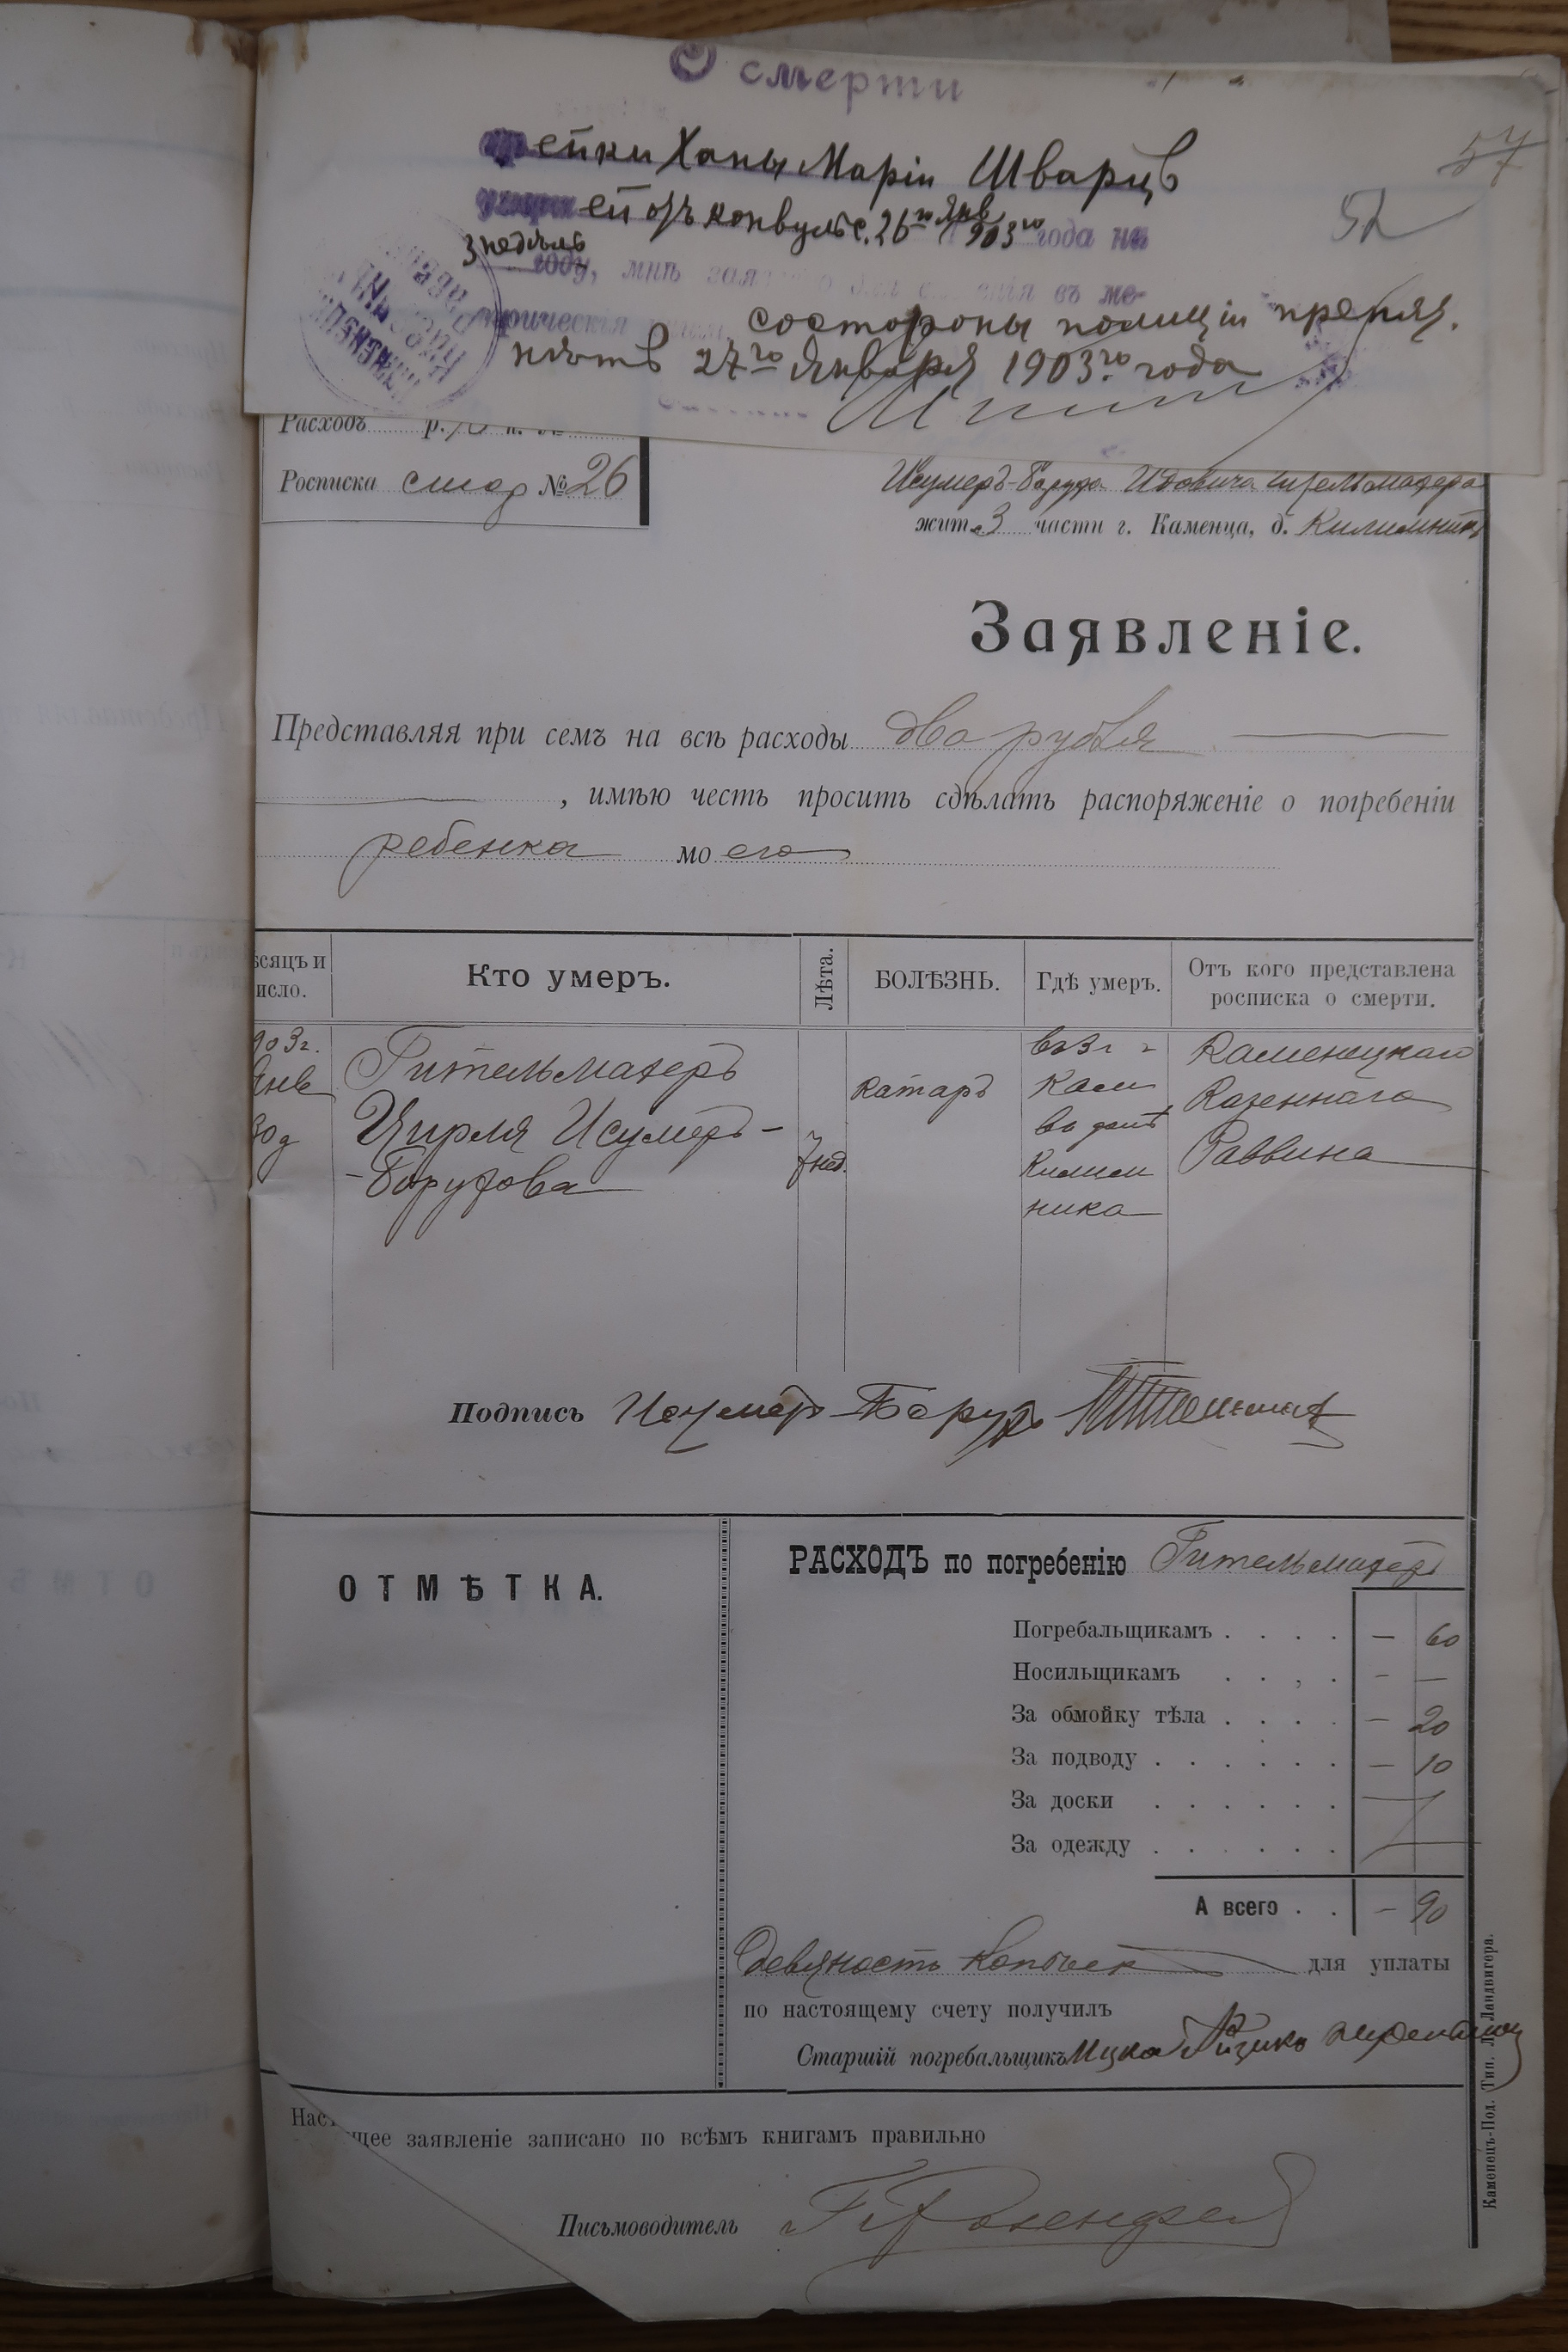 О смерти
ейки Ханы Маріи Шварцъ
ей отъ конвульс. 26го Янв 1903го года на
3 недѣль году, мнѣ въ ме-
трическія состороны полиціи препят.
нѣтъ 27го Января 1903го года
57
52
Расходъ р. к.
Росписка №26
жит. 3 части г. Каменца, д.
Заявленіе.
Представляя при семъ на всѣ расходы два рубля
, имѣю честь просить сдѣлать распоряженіе о погребеніи
ребенка моего
ѣсяцъ и исло.
Кто умеръ.
Лѣта.
БОЛѢЗНЬ.
Гдѣ умеръ.
Отъ кого представлена росписка о смерти.
903г.
Янв
30д
Гительмахеръ
Цирля Исумеръ-
-Борухова
7 нед.
катаръ
въ 3 г
Кам
въ домѣ
Килим
ника
Каменецкаго
Казеннаго
Раввина
Подпись Исумеръ-Борухъ
ОТМѢТКА.
РАСХОДЪ по погребенію Гительмахеръ
Погребальщикамъ . . . . — 60
Носильщикамъ . . . . — —
За обмойку тѣла . . . . — 20
За подводу . . . . . . — 10
За доски . . . . . . —
За одежду . . . . . . —
А всего . . — 90
Девяносто копѣек для уплаты
по настоящему счету получилъ
Старшій погребальщикъ Ицко
Наст
щее заявленіе записано по всѣмъ книгамъ правильно
Письмоводитель
Каменецъ-Под. Тип. Л. Ландвигера.